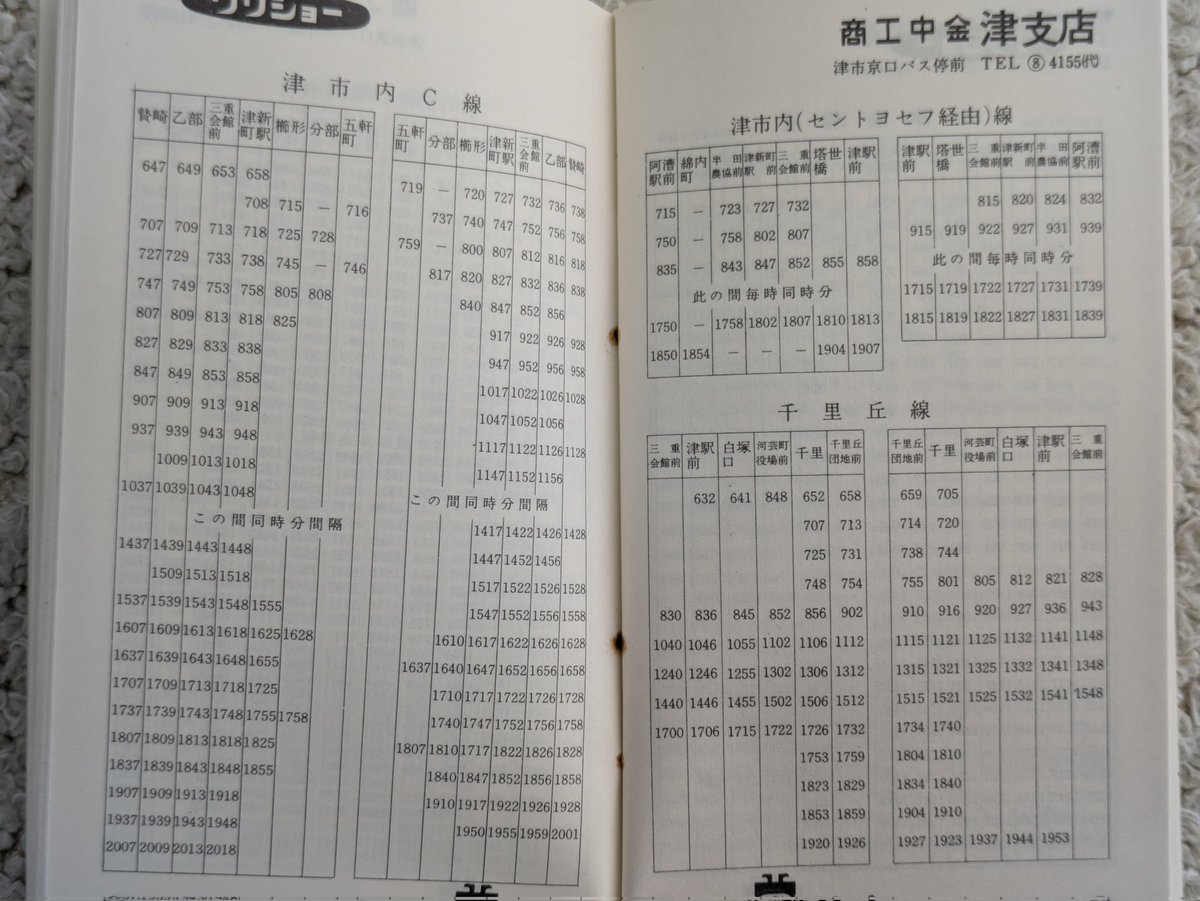 リリショー
津市内C線
贄崎 乙部 三重会館前 津新町駅 櫛形 分部 五軒町
647 649 653 658
708 715 － 716
707 709 713 718 725 728
727 729 733 738 745 － 746
747 749 753 758 805 808
807 809 813 818 825
827 829 833 838
847 849 853 858
907 909 913 918
937 939 943 948
1009 1013 1018
1037 1039 1043 1048
この間同時分間隔
1437 1439 1443 1448
1509 1513 1518
1537 1539 1543 1548 1555
1607 1609 1613 1618 1625 1628
1637 1639 1643 1648 1655
1707 1709 1713 1718 1725
1737 1739 1743 1748 1755 1758
1807 1809 1813 1818 1825
1837 1839 1843 1848 1855
1907 1909 1913 1918
1937 1939 1943 1948
2007 2009 2013 2018
五軒町 分部 櫛形 津新町駅 三重会館前 乙部 贄崎
719 － 720 727 732 736 738
737 740 747 752 756 758
759 － 800 807 812 816 818
817 820 827 832 836 838
840 847 852 856
917 922 926 928
947 952 956 958
1017 1022 1026 1028
1047 1052 1056
1117 1122 1126 1128
1147 1152 1156
この間同時分間隔
1417 1422 1426 1428
1447 1452 1456
1517 1522 1526 1528
1547 1552 1556 1558
1610 1617 1622 1626 1628
1637 1640 1647 1652 1656 1658
1710 1717 1722 1726 1728
1740 1747 1752 1756 1758
1807 1810 1717 1822 1826 1828
1840 1847 1852 1856 1858
1910 1917 1922 1926 1928
1950 1955 1959 2001
商工中金 津支店
津市京口バス停前 TEL ⑧ 4155㈹
津市内(セントヨセフ経由)線
阿漕駅前 綿内町 半田農協前 津新町駅前 三重会館前 塔世橋 津駅前
715 － 723 727 732
750 － 758 802 807
835 － 843 847 852 855 858
此の間毎時同時分
1750 － 1758 1802 1807 1810 1813
1850 1854 － － － 1904 1907
津駅前 塔世橋 三重会館前 津新町駅前 半田農協前 阿漕駅前
815 820 824 832
915 919 922 927 931 939
此の間毎時同時分
1715 1719 1722 1727 1731 1739
1815 1819 1822 1827 1831 1839
千里丘線
三重会館前 津駅前 白塚口 河芸町役場前 千里 千里丘団地前
632 641 848 652 658
707 713
725 731
748 754
830 836 845 852 856 902
1040 1046 1055 1102 1106 1112
1240 1246 1255 1302 1306 1312
1440 1446 1455 1502 1506 1512
1700 1706 1715 1722 1726 1732
1753 1759
1823 1829
1853 1859
1920 1926
千里丘団地前 千里 河芸町役場前 白塚口 津駅前 三重会館前
659 705
714 720
738 744
755 801 805 812 821 828
910 916 920 927 936 943
1115 1121 1125 1132 1141 1148
1315 1321 1325 1332 1341 1348
1515 1521 1525 1532 1541 1548
1734 1740
1804 1810
1834 1840
1904 1910
1927 1923 1937 1944 1953